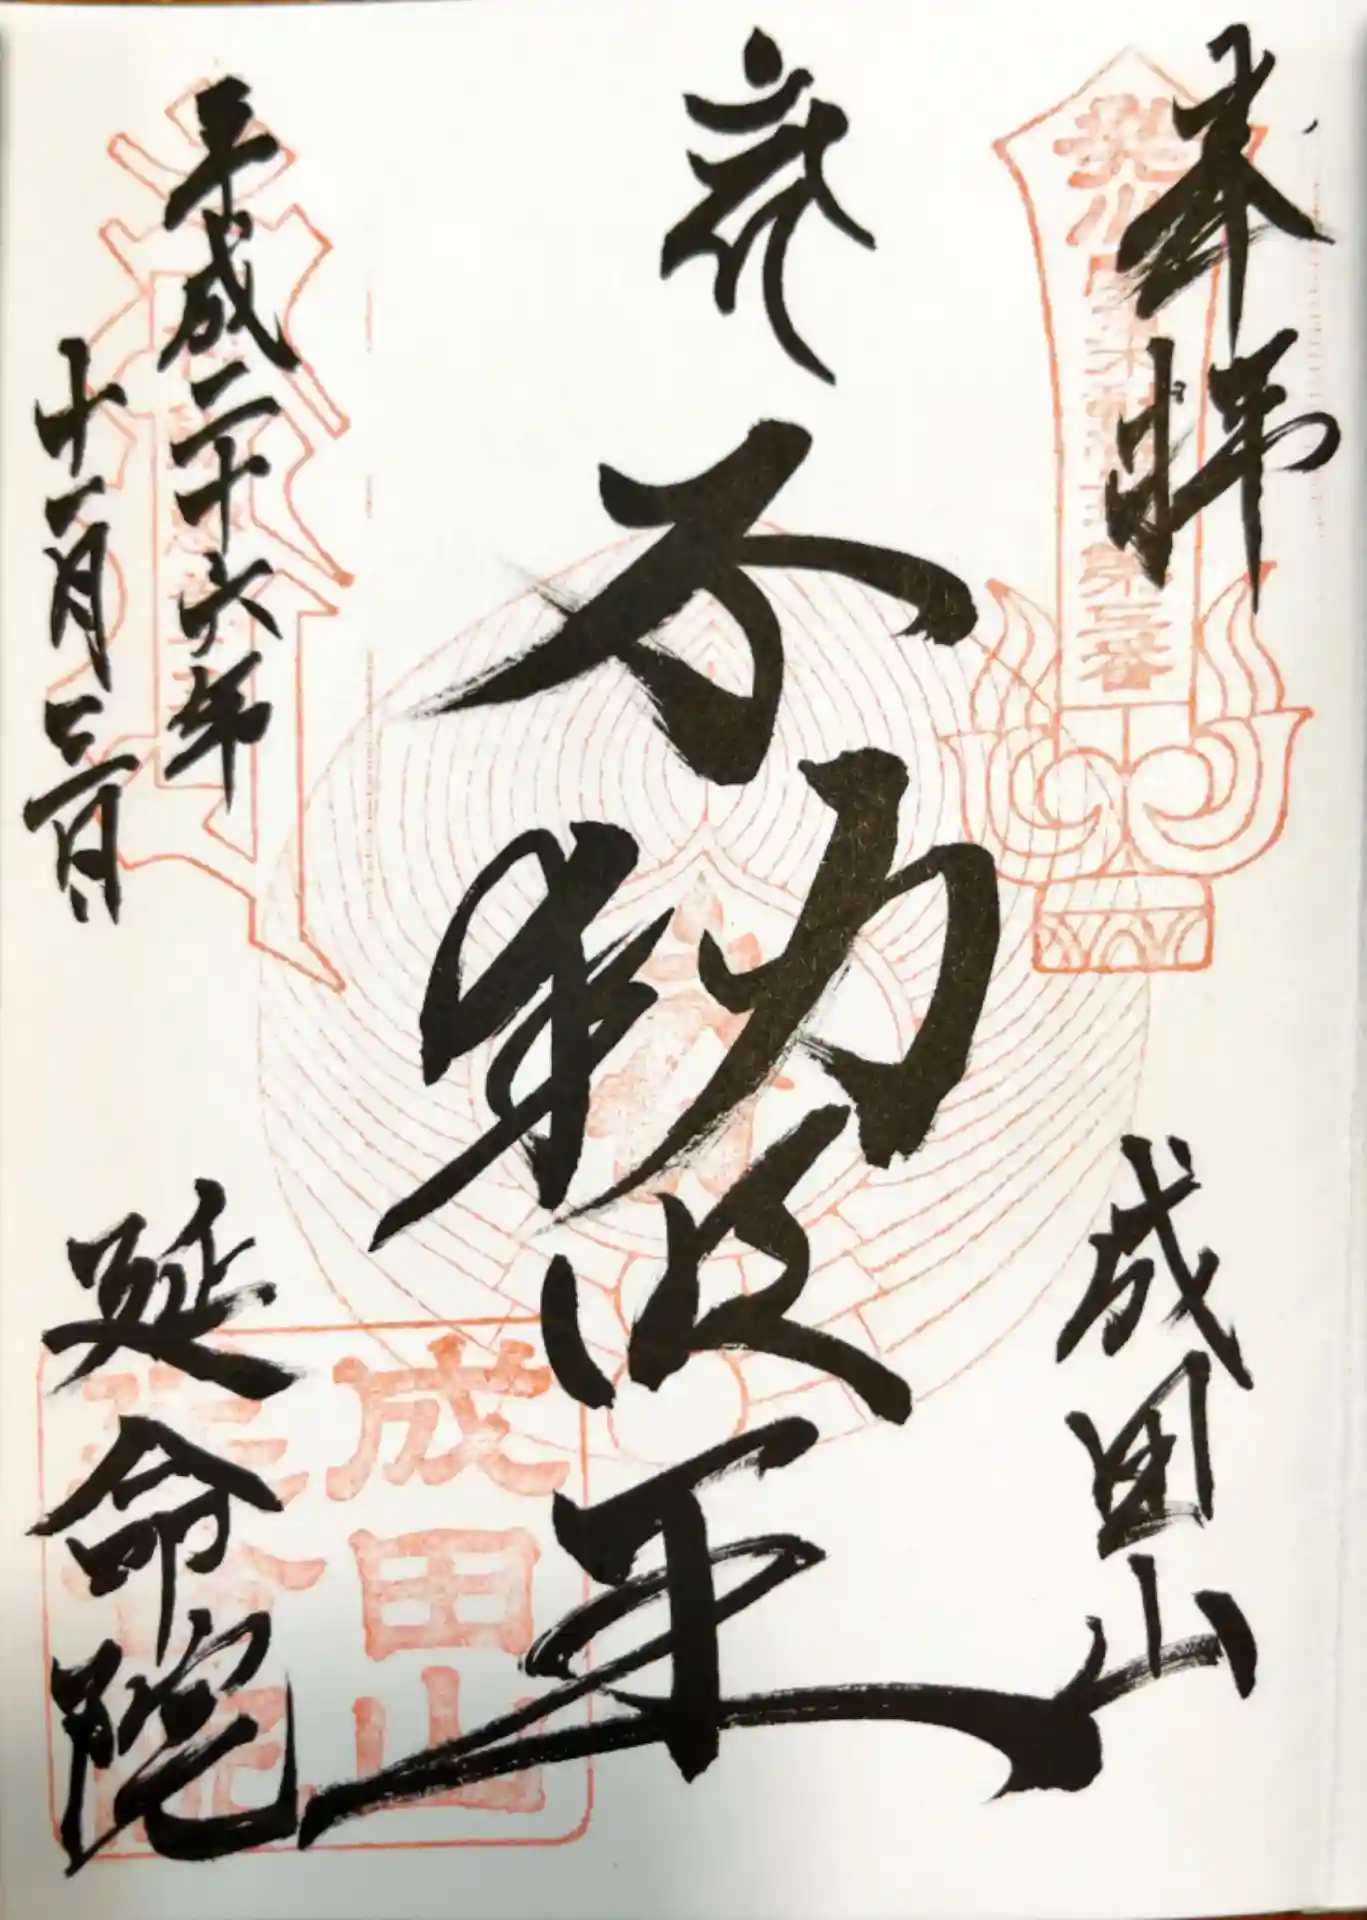 奉拝
成田山
不動明王
平成二十六年
十一月三日
延命院
成田山
延命院